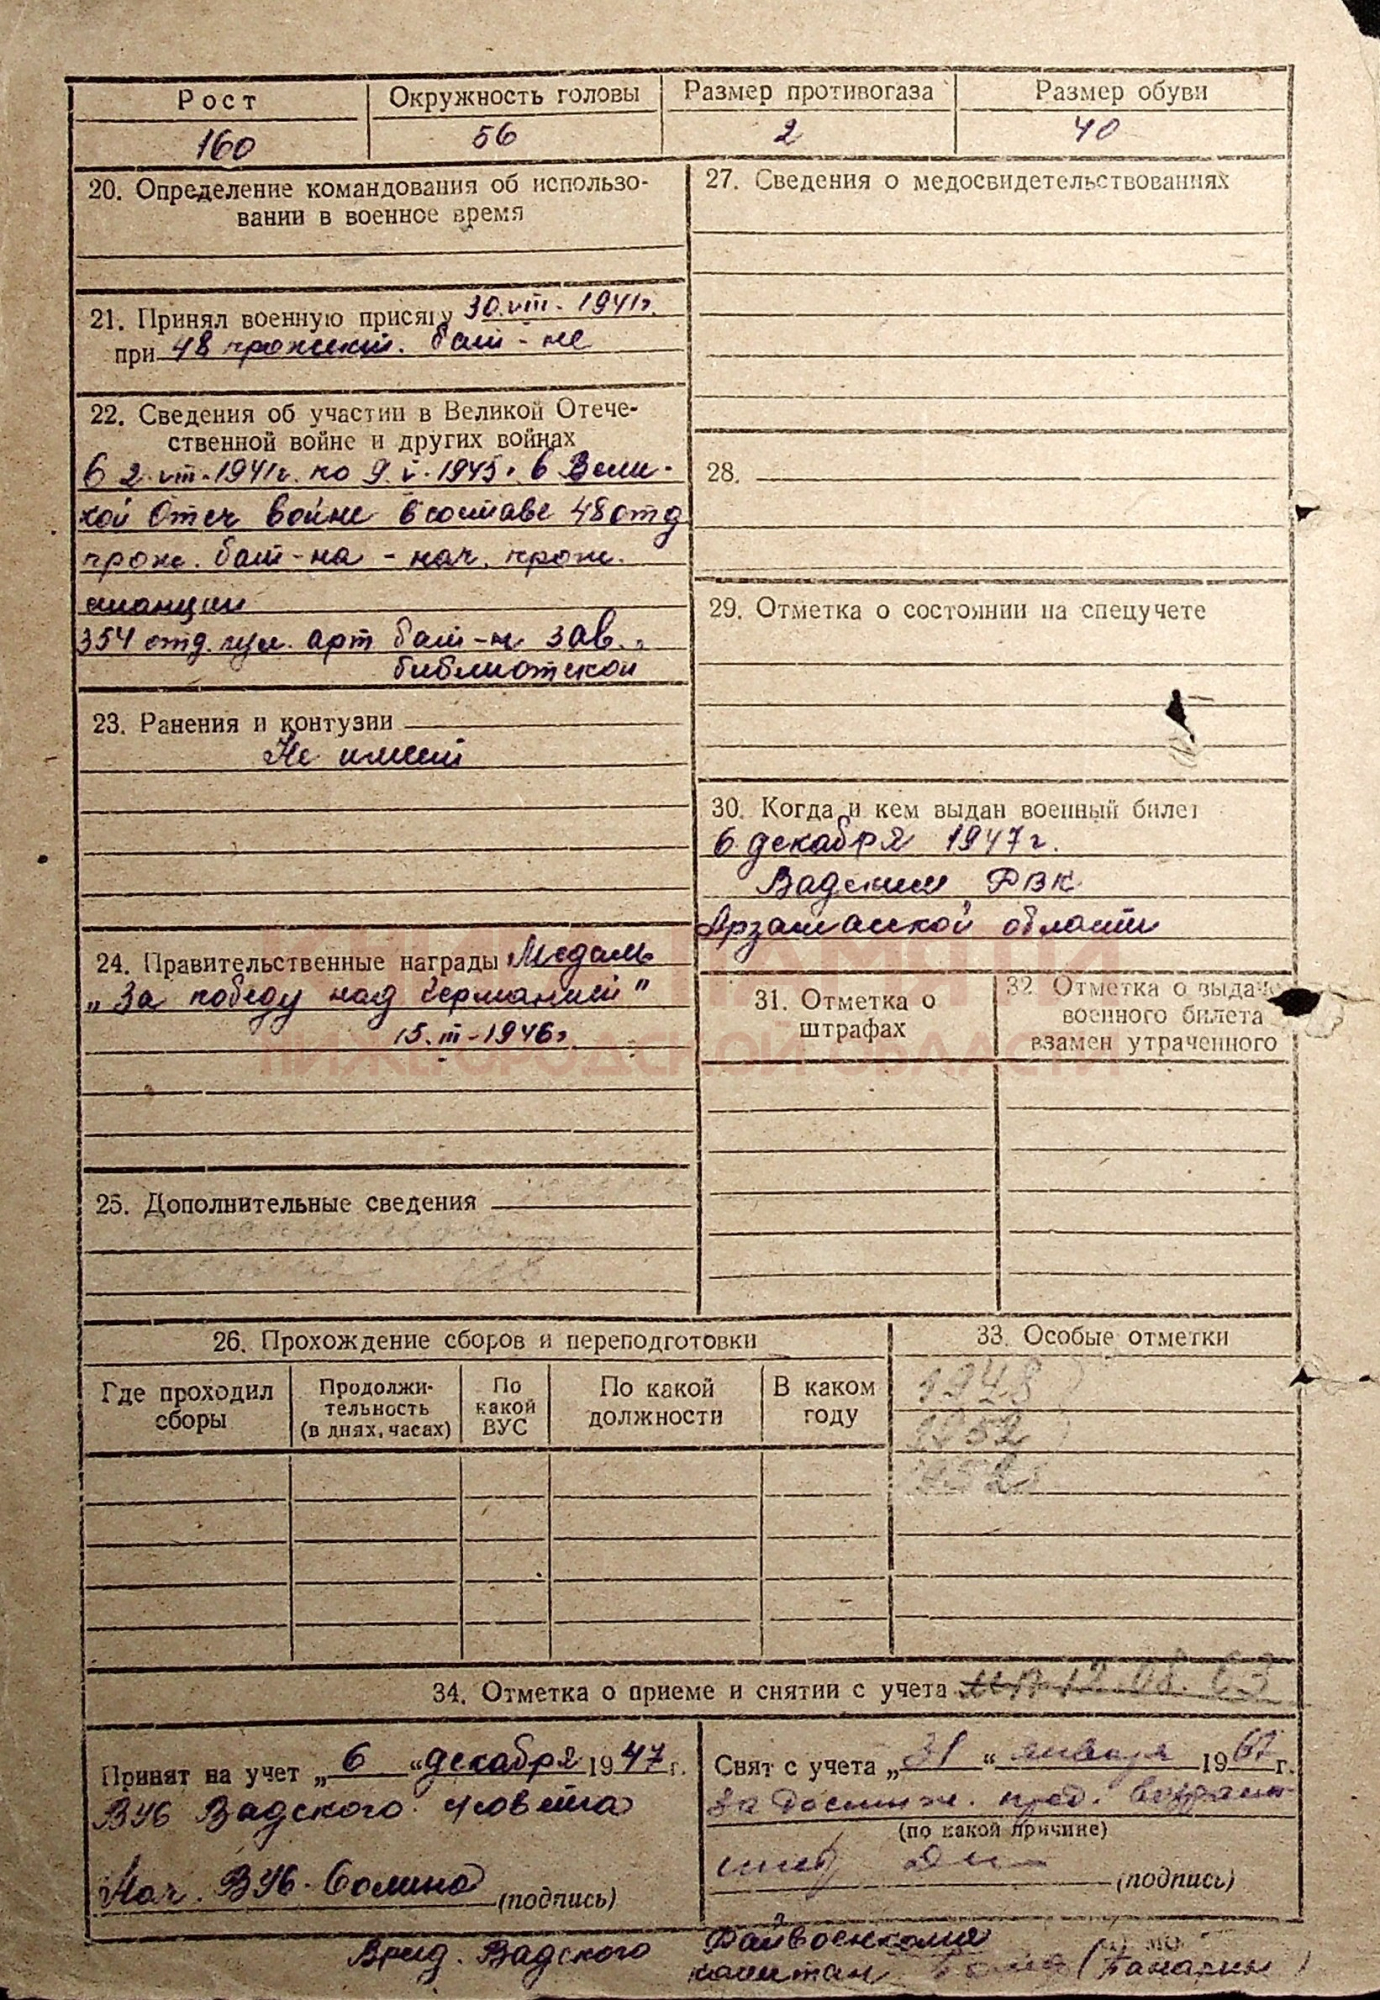 Рост
Окружность головы
Размер противогаза
Размер обуви
160
56
2
40
20. Определение командования об использо-
вании в военное время
21. Принял военную присягу 30.VIII-1941г.
при 48 прожект. бат-не
22. Сведения об участии в Великой Отече-
ственной войне и других войнах
С 2.VIII-1941г. по 9.V.1945. в Вели-
кой Отеч войне в составе 48 отд
прож. бат-на - нач. прож.
станции
354 отд. пул. арт бат-н зав.
библиотекой
23. Ранения и контузии
Не имеет
24. Правительственные награды Медаль
„За победу над Германией"
15.III-1946г.
25. Дополнительные сведения
27. Сведения о медосвидетельствованиях
28.
29. Отметка о состоянии на спецучете
30. Когда и кем выдан военный билет
6 декабря 1947г.
Вадским РВК
Арзамасской области
31. Отметка о
штрафах
32. Отметка о выдаче
военного билета
взамен утраченного
КНИГА ПАМЯТИ
НИЖЕГОРОДСКОЙ ОБЛАСТИ
26. Прохождение сборов и переподготовки
Где проходил
сборы
Продолжи-
тельность
(в днях, часах)
По
какой
ВУС
По какой
должности
В каком
году
33. Особые отметки
1948
1952
1952
34. Отметка о приеме и снятии с учета 12.08.63
Принят на учет „6" декабря 1947г.
ВУБ Вадского с/совета
Нач. ВУБ
(подпись)
Снят с учета „31" января 1967г.
за достиж. пред. возраст
(по какой причине)
(подпись)
Врид. Вадского Райвоенкома
капитан (Панарин)